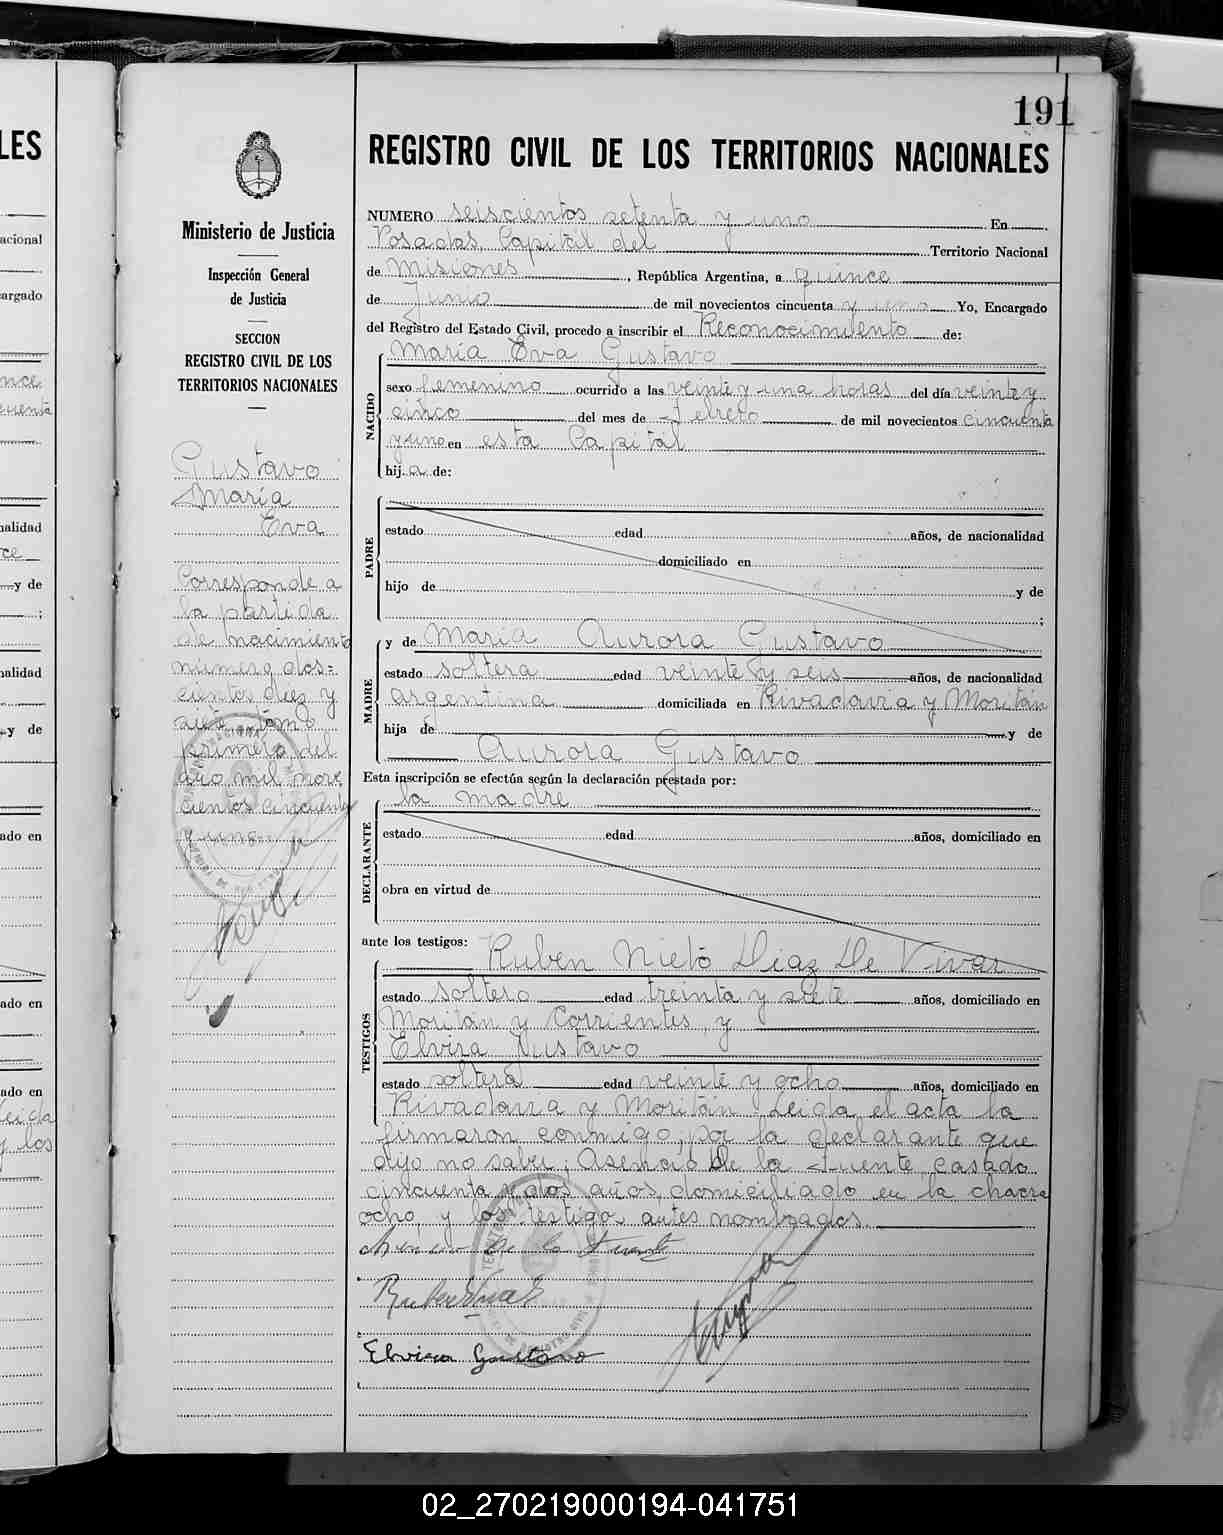 191
REGISTRO CIVIL DE LOS TERRITORIOS NACIONALES
Ministerio de Justicia
Inspección General
de Justicia
SECCION
REGISTRO CIVIL DE LOS
TERRITORIOS NACIONALES
Gustavo
María
Eva
Corresponde a
la partida
de nacimiento
número dos=
cientos diez y
siete tomo
primero del
año mil nove
cientos cincuenta
y uno
NUMERO seiscientos setenta y uno En
Posadas, Capital del Territorio Nacional
de Misiones, República Argentina, a quince
de Junio de mil novecientos cincuenta y uno Yo, Encargado
del Registro del Estado Civil, procedo a inscribir el Reconocimiento de:
NACIDO
María Eva Gustavo
sexo femenino ocurrido a las veinte y una horas del día veinte y
cinco del mes de Febrero de mil novecientos cincuenta
y uno en esta Capital
hij a de:
PADRE
estado edad años, de nacionalidad
domiciliado en
hijo de y de
;
MADRE
y de María Aurora Gustavo
estado soltera edad veinte y seis años, de nacionalidad
argentina domiciliada en Rivadavia y Moritán
hija de y de
Aurora Gustavo
Esta inscripción se efectúa según la declaración prestada por:
la madre
DECLARANTE
estado edad años, domiciliado en
obra en virtud de
ante los testigos: Ruben Nieto Diaz De Vivar
TESTIGOS
estado soltero edad treinta y siete años, domiciliado en
Moritán y Corrientes, y
Elvira Gustavo
estado soltera edad veinte y ocho años, domiciliado en
Rivadavia y Moritán. Leida el acta la
firmaron conmigo, por la declarante que
dijo no saber, Asencio De la Fuente, casado
cincuenta y dos años, domiciliado en la chacra
ocho y los testigos antes nombrados.
Asencio De la Fuente
Elvira Gustavo
02_270219000194-041751